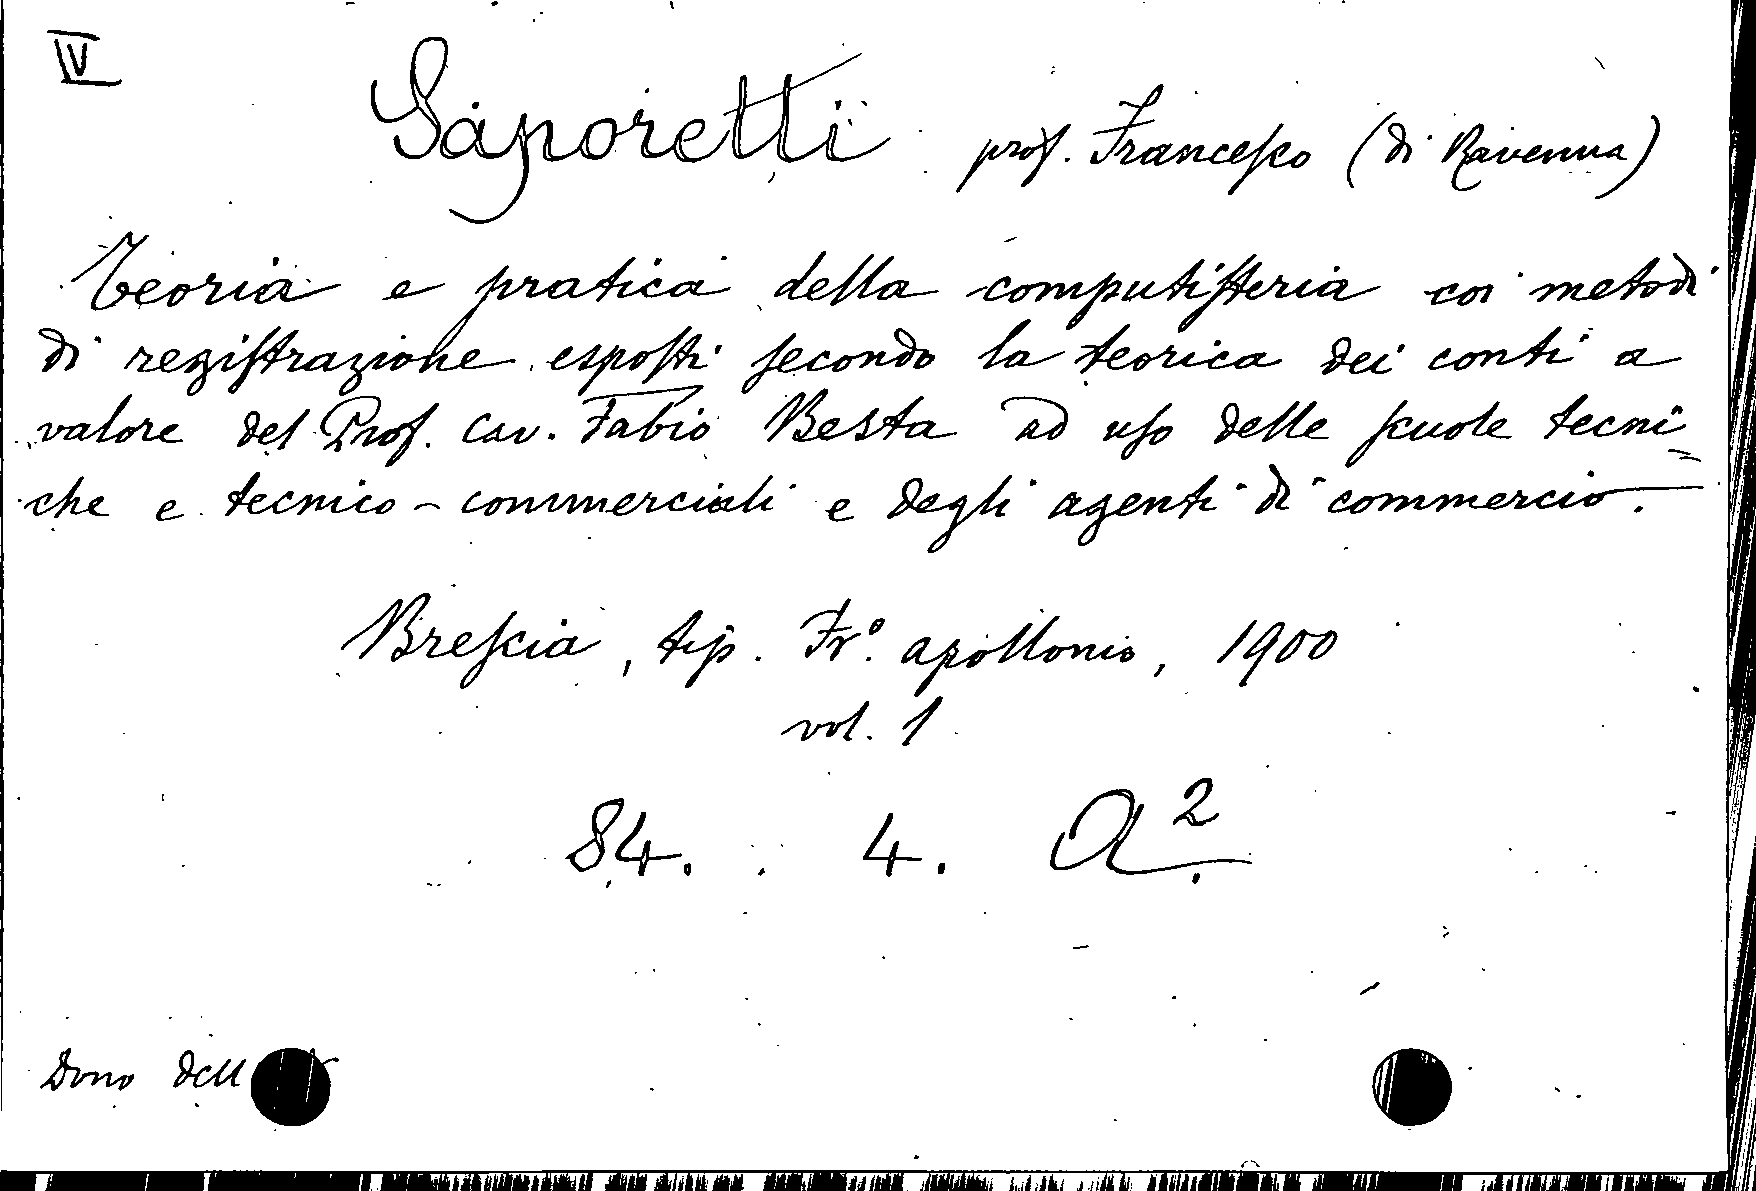 IV
Saporetti prof. Francesco (di Ravenna)
Teoria e pratica della computisteria coi metodi
di registrazione esposti secondo la teorica dei conti a
valore del Prof. Cav. Fabio Besta ad uso delle scuole tecni=
che e tecnico-commerciali e degli agenti di commercio.
Brescia, tip. Fr.º apollonio, 1900
vol. 1
84. 4. A 2.
Dono dell